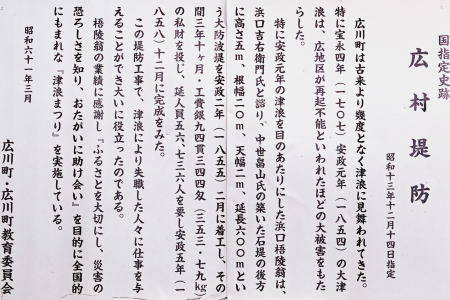 国指定史跡
広村堤防
昭和十三年十二月十四日指定
広川町は古来より幾度となく津浪に見舞われてきた。
特に宝永四年(一七〇七)安政元年(一八五四)の大津
浪は、広地区が再起不能といわれたほどの大被害をもた
らした。
特に安政元年の津浪を目のあたりにした浜口梧陵翁は、
浜口吉右衛門氏と諮り、中世畠山氏の築いた石堤の後方
に高さ五m、根幅二〇m、天幅二m、延長六〇〇mとい
う大防波堤を安政二年(一八五五)二月に着工し、その
間三年十ヶ月・工費銀九四貫三四四匁(三五三・七九kg)
の私財を投じ、延人員五六、七三六人を要し安政五年(一
八五八)十二月に完成をみた。
この堤防工事で、津浪により失職した人々に仕事を与
えることができ大いに役立ったのである。
梧陵翁の業績に感謝し『ふるさとを大切にし、災害の
恐ろしさを知り、おたがいに助け会い』を目的に全国的
にもまれな『津浪まつり』を実施している。
昭和六十一年三月
広川町・広川町教育委員会